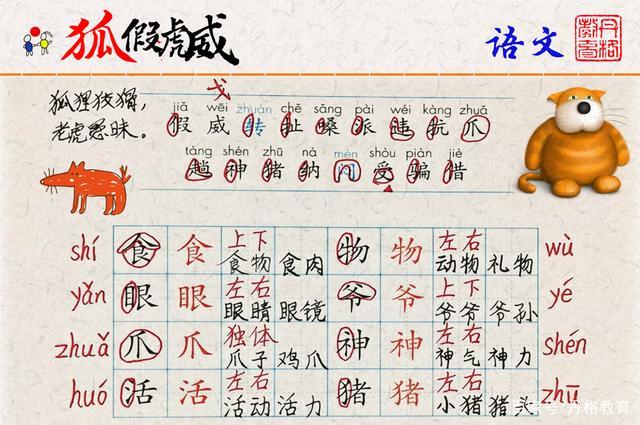 狐假虎威 语文 丹格教育
狐狸狡猾，
老虎愚昧。
戈
jiā wēi zhuàn chě sǎng pài wéi kàng zhuǎ
假 威 转 扯 嗓 派 违 抗 爪
tàng shén zhū nà mèn shòu piàn jiè
趟 神 猪 纳 闷 受 骗 借
shí 食 食 上下 食物 食肉 物 物 左右 动物 礼物 wù
yǎn 眼 眼 左右 眼睛 眼镜 爷 爷 上下 爷爷 爷孙 yé
zhuǎ 爪 爪 独体 爪子 鸡爪 神 神 左右 神气 神力 shén
huó 活 活 左右 活动 活力 猪 猪 左右 小猪 猪头 zhū
号·丹格教育